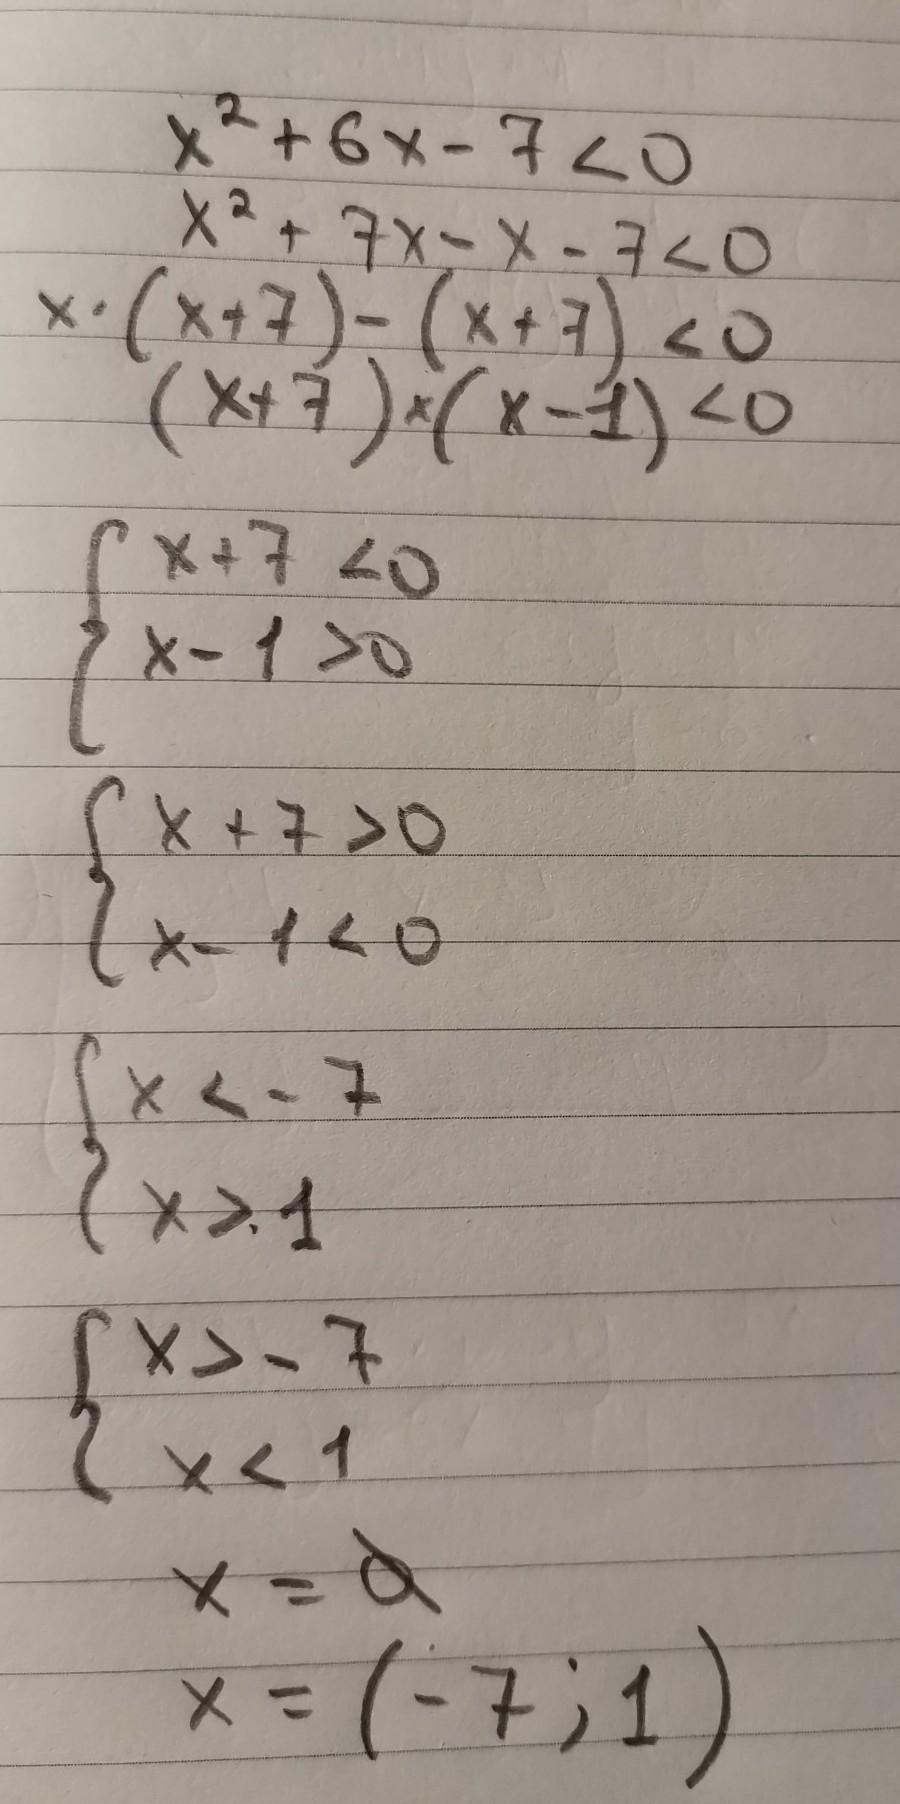 x² + 6x - 7 < 0
x² + 7x - x - 7 < 0
x · (x+7) - (x+7) < 0
(x+7) × (x-1) < 0
{ x+7 < 0
x - 1 > 0
{ x + 7 > 0
x - 1 < 0
{ x < - 7
x > 1
{ x > - 7
x < 1
x = ∅
x = (-7; 1)